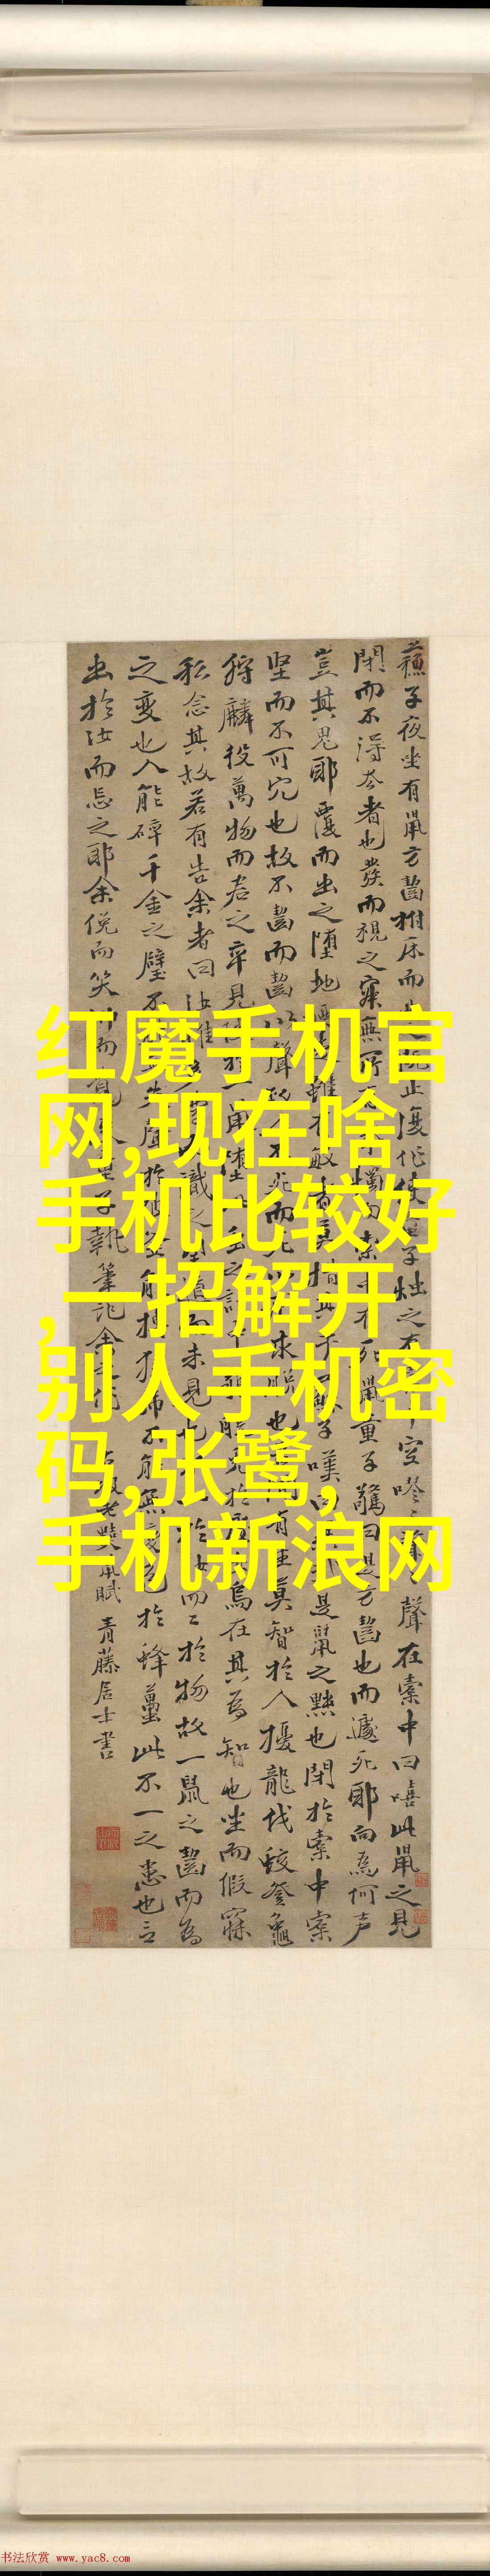 红魔手机官
网,现在啥
手机比较好
,一招解开
别人手机密
码,张鹭,
手机新浪网
蘇子夜坐有鼠方齧拊床而止復作使童子燭之有空嘐聲在橐中曰嘻此鼠之見
閉而不得去者也發而視之寂無所中有死鼠童子驚曰是方齧也而遽死耶向為何声
豈其鬼耶覆而出之堕地雖有敏者莫措其手嘆曰是鼠之黠也閉於橐中橐
坚而不可穴也故不齧而齧以聲不死而死求脱也有生莫智於人擾龍伐蛟登龜
狩麟役萬物而君之卒見於一鼠堕之計脱兔於烏在其為知也坐而假寐
私念其故若有告余者曰汝惟識之望而未見也於汝而二於物故一鼠之齧而為
之變也人能碎千金之璧不失聲於能搏不能無變色於蜂蠆此不一之患也言
出於汝而忘之耶余俛而笑仰而覺童子執筆記余之作
坡老黠鼠賦 青藤居士書
书法欣赏 www.yac8.com